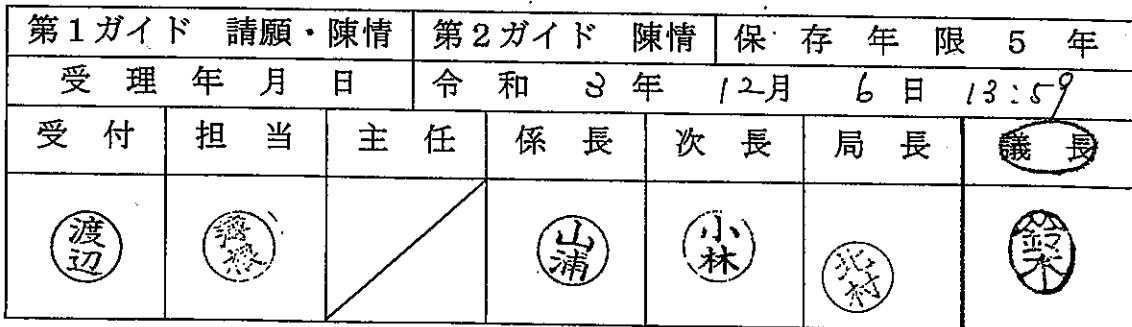 第1ガイド 請願・陳情 第2ガイド 陳情 保存年限 5年
受理年月日 令和 3年 12月 6日 13:59
受付 担当 主任 係長 次長 局長 議長
渡辺 山浦 小林 北村 鈴木